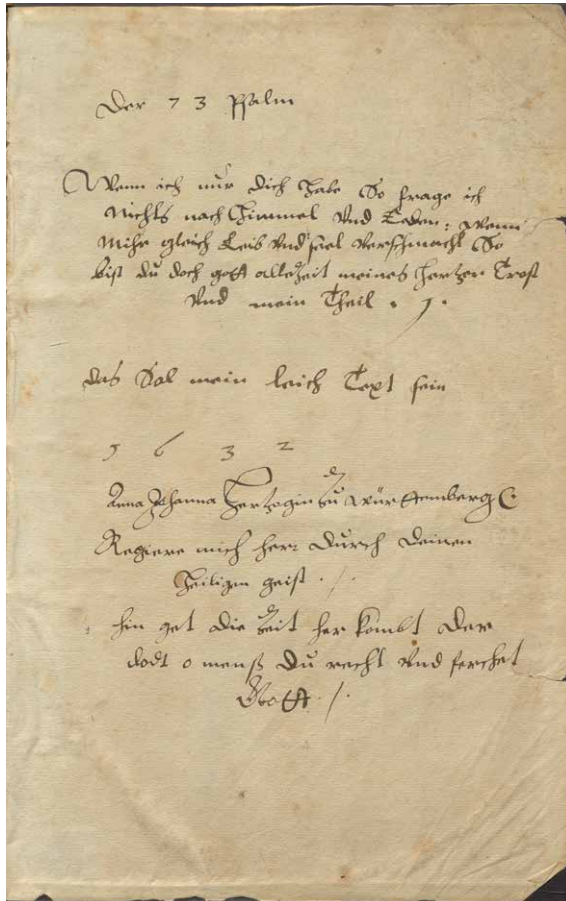 Der 73 Psalm
Wenn ich nur dich habe So frage ich
Nichts nach Himmel Vnd Erden: wenn
Mihr gleich Leib Vnd sael Verschmacht So
bist du doch gott allezeit meines hertzen Trost
Vnd mein Theil . /.
das Sol mein leich Text sein
1632
Anna Johanna Hertzogin zu Württemberg
Regiere mich herr Durch Deinen
heiligen geist . /.
hin get die Zeit her kombt Der
dodt o mensß Du recht Vnd ferchet
Gott . /.